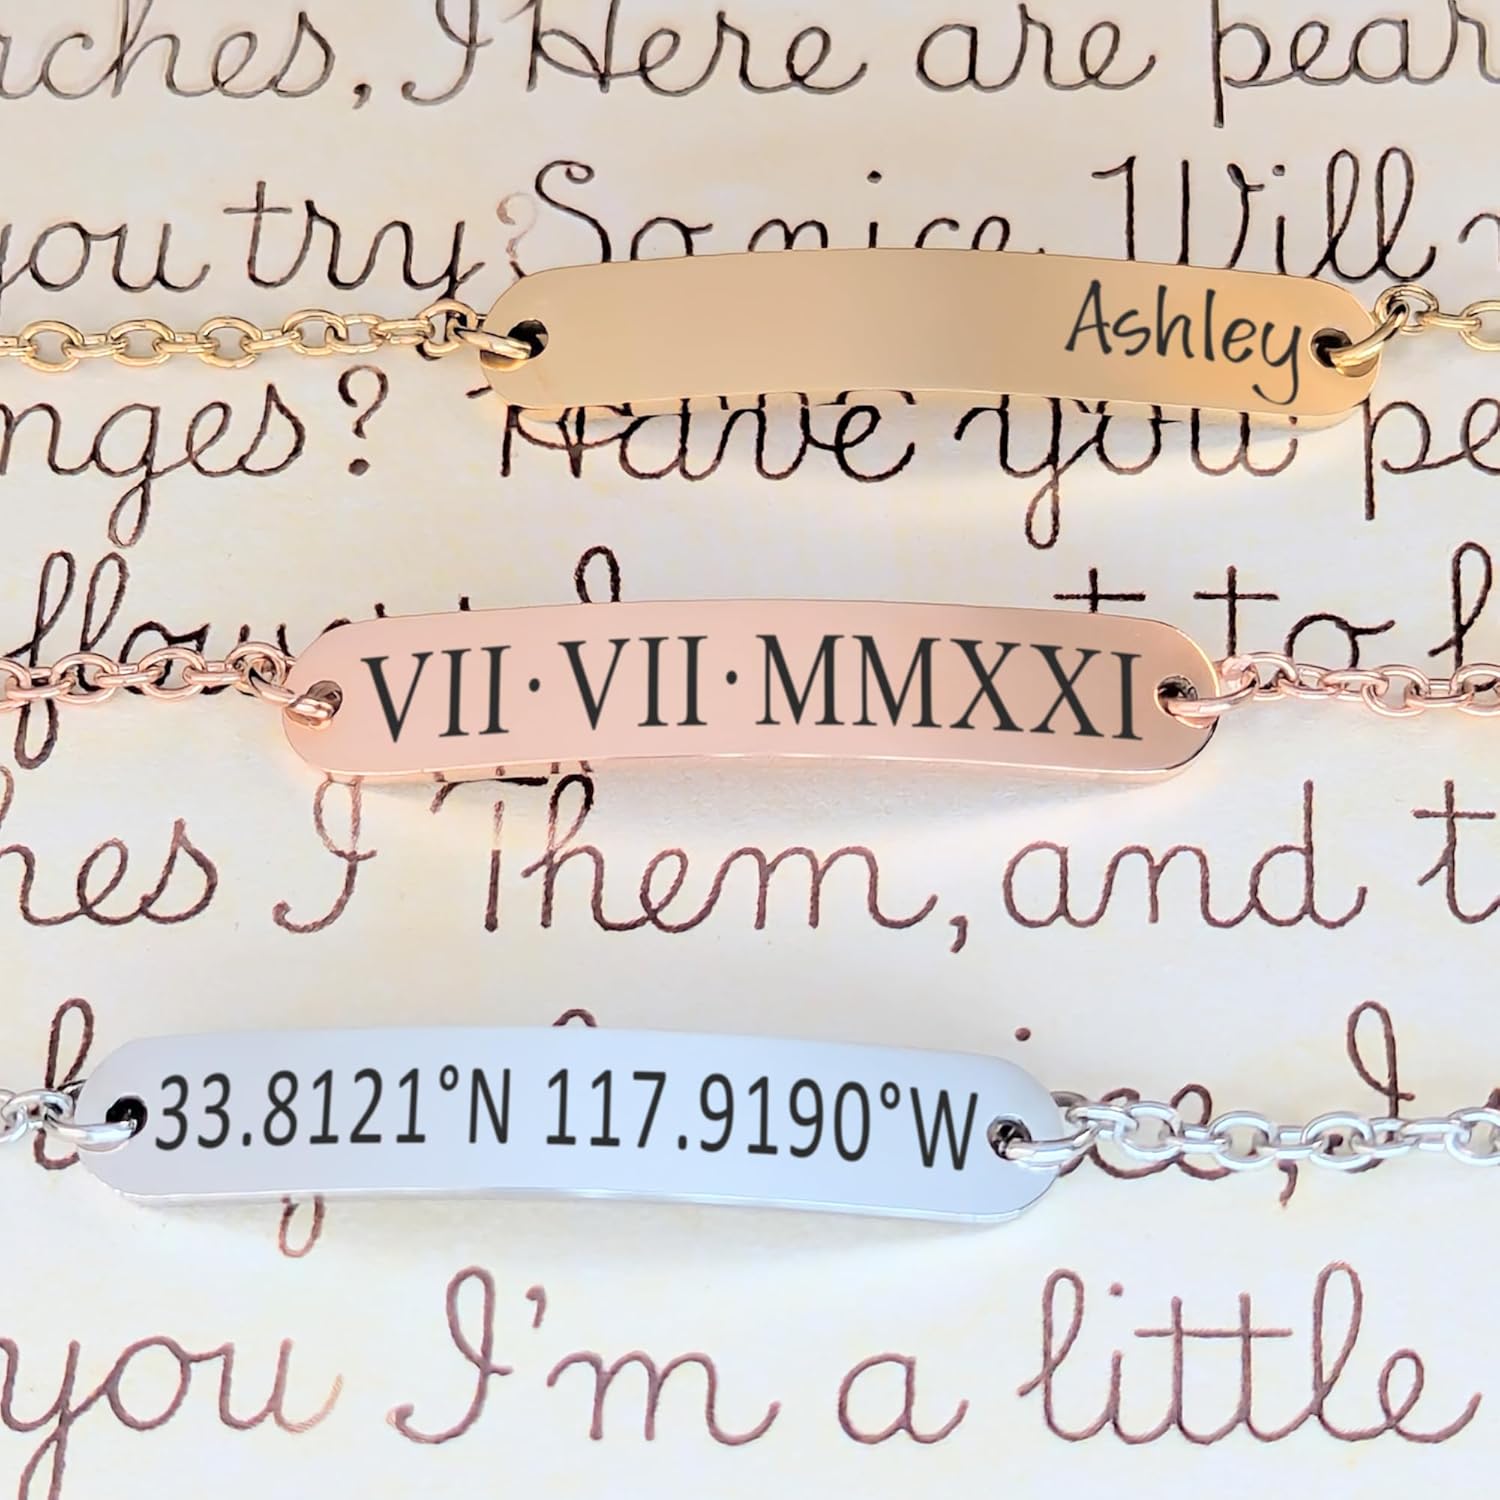 Here are
you try? So nice. Will
Ashley
nges? Have you
VII·VII·MMXXI
to
I Them, and
33.8121°N 117.9190°W
you I'm a little